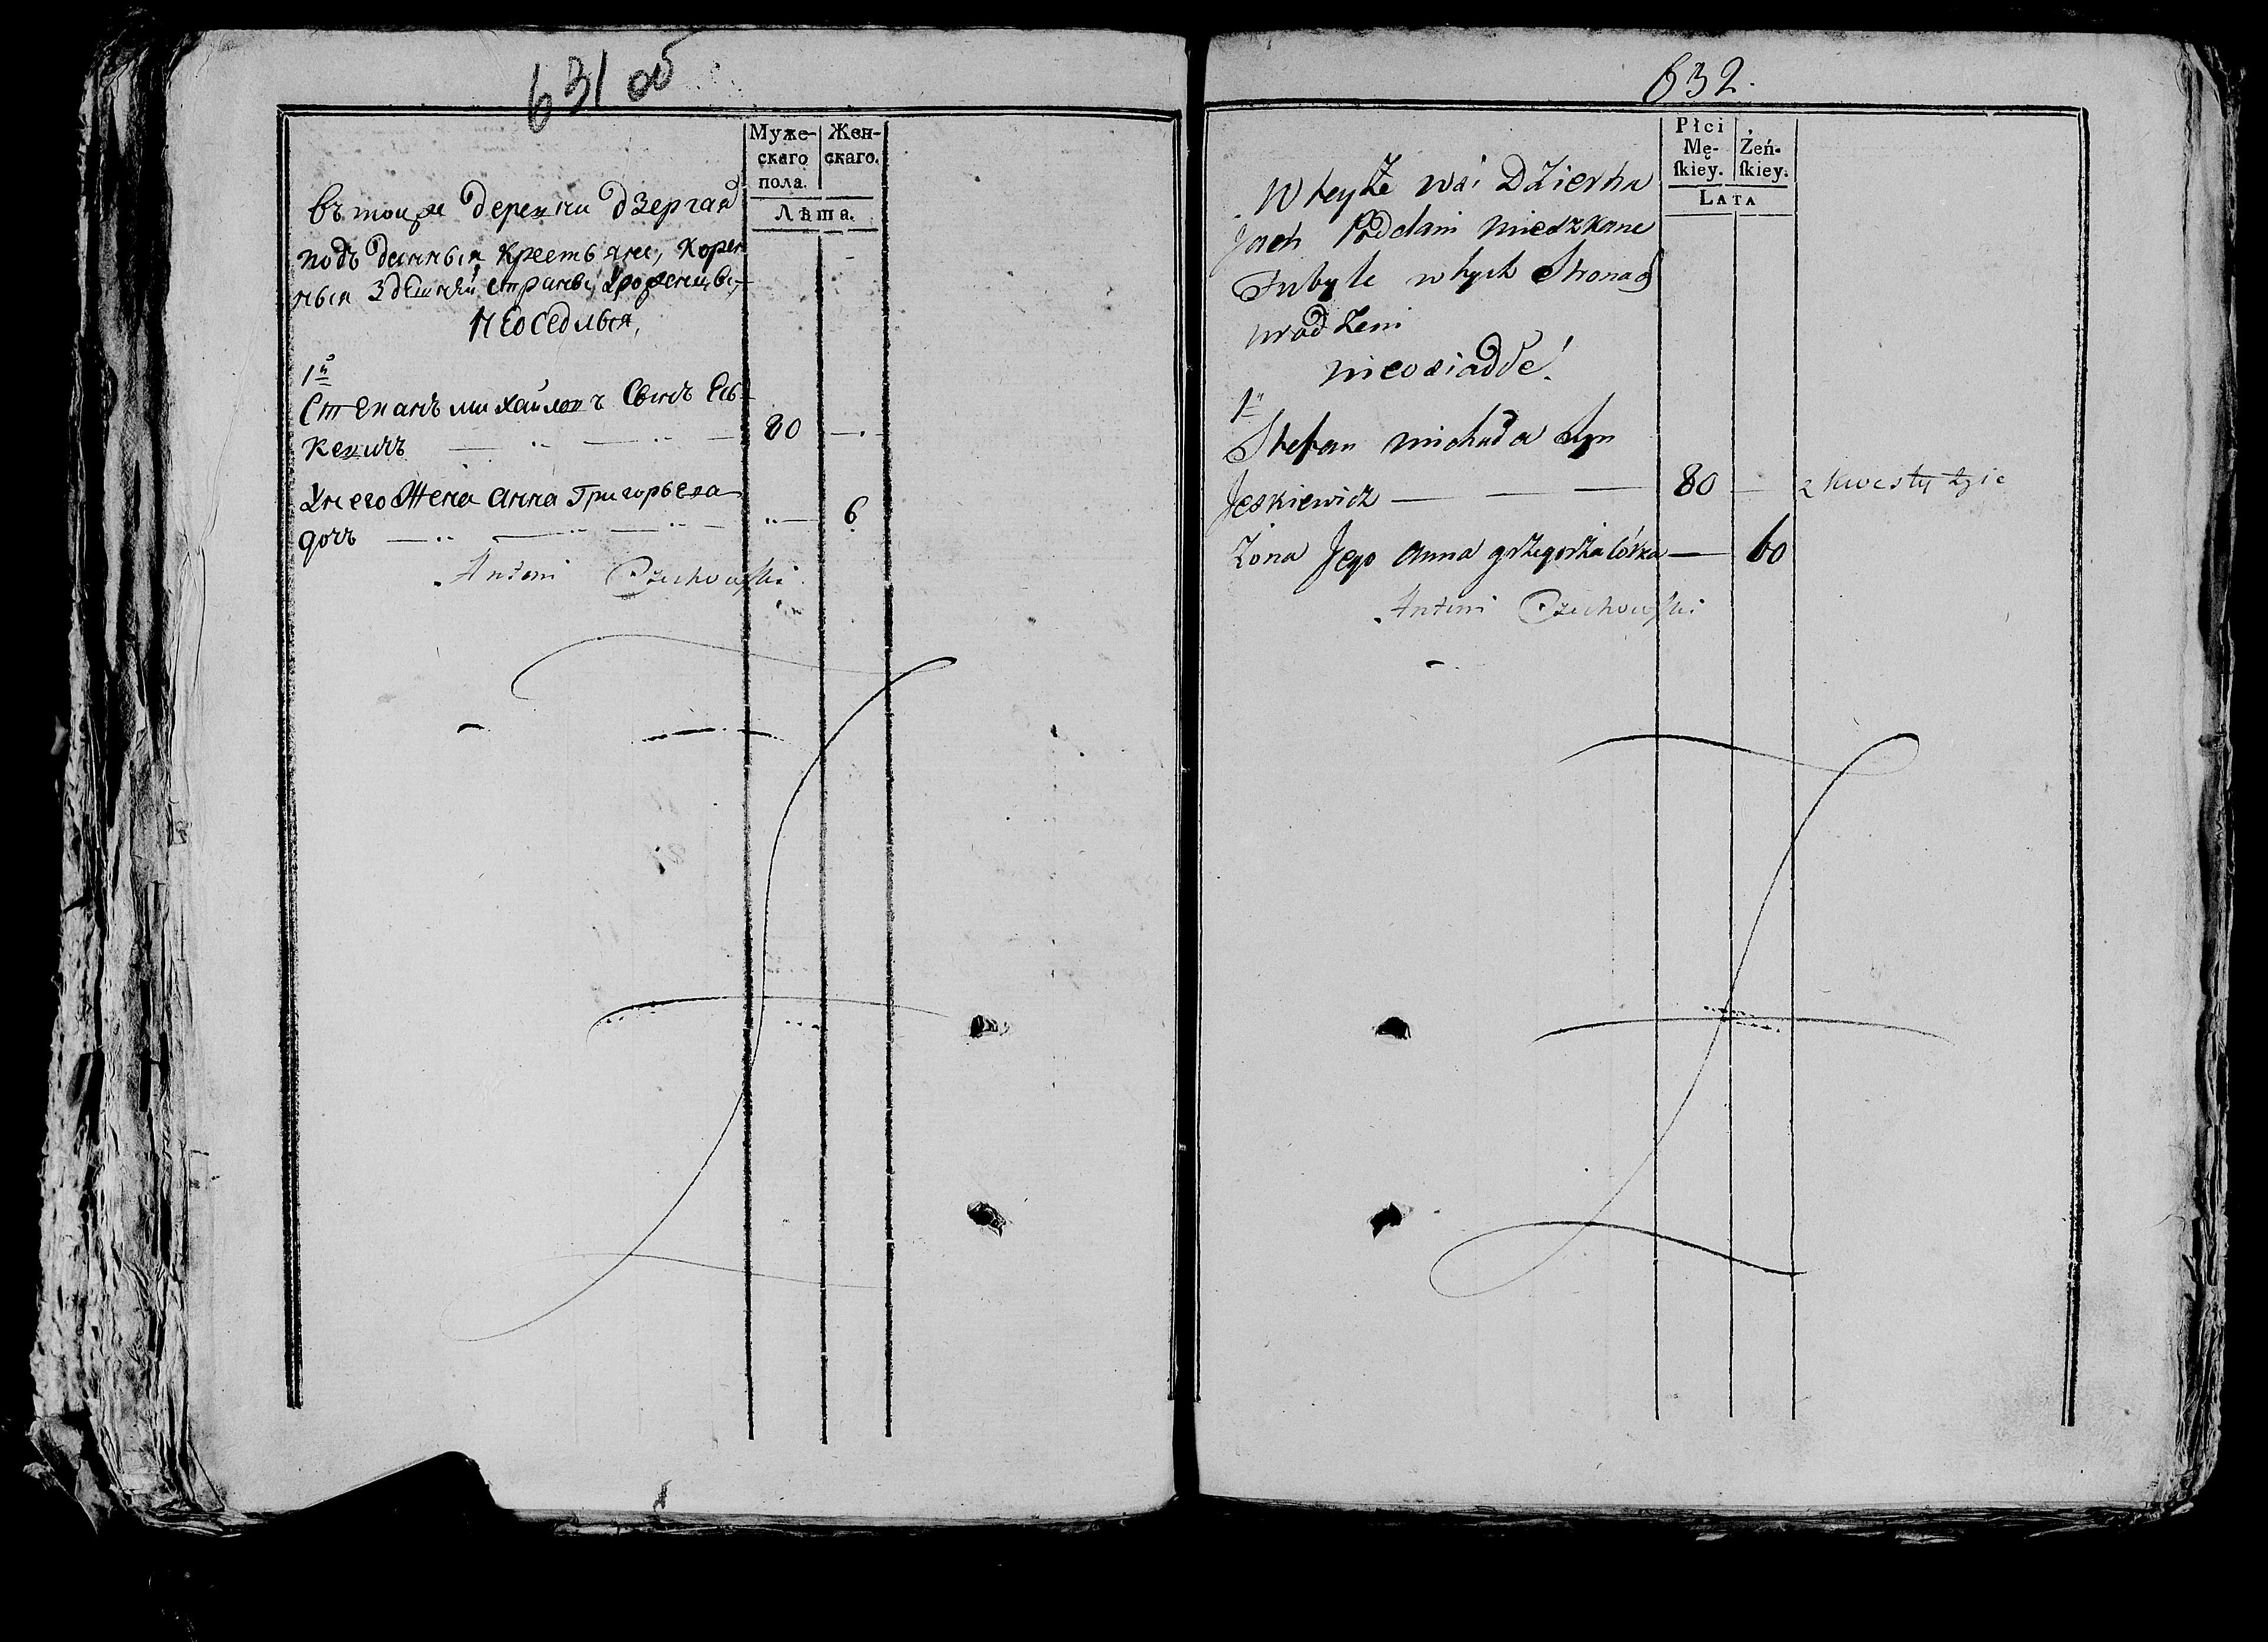 631 об
Муже-
скаго
пола.
Жен-
скаго.
Лѣта.
въ тойже деревни дзергая
подъданныя крестьяне, корен
ныя здѣшнѣй страны, Уроженцы,
Неоседлыя,
1й
Степанъ михайловъ Сынъ Есь-
кевичъ
80
Унего Жена анна Григорьева
дочь
6
Antoni Czechowski
632.
Płci
Mę-
ſkiey.
Żeń-
ſkiey.
LATA
W teyże wsi Dzierha
jach Poddani mieszkańce
Tubyle w tych Stronach
urodzeni
nieosiadłe.
1
Stefan michała Syn
Jeskiewicz
80
z kwesty żyie
Żona Jego anna grzegorza córka
60
Antoni Czechowski